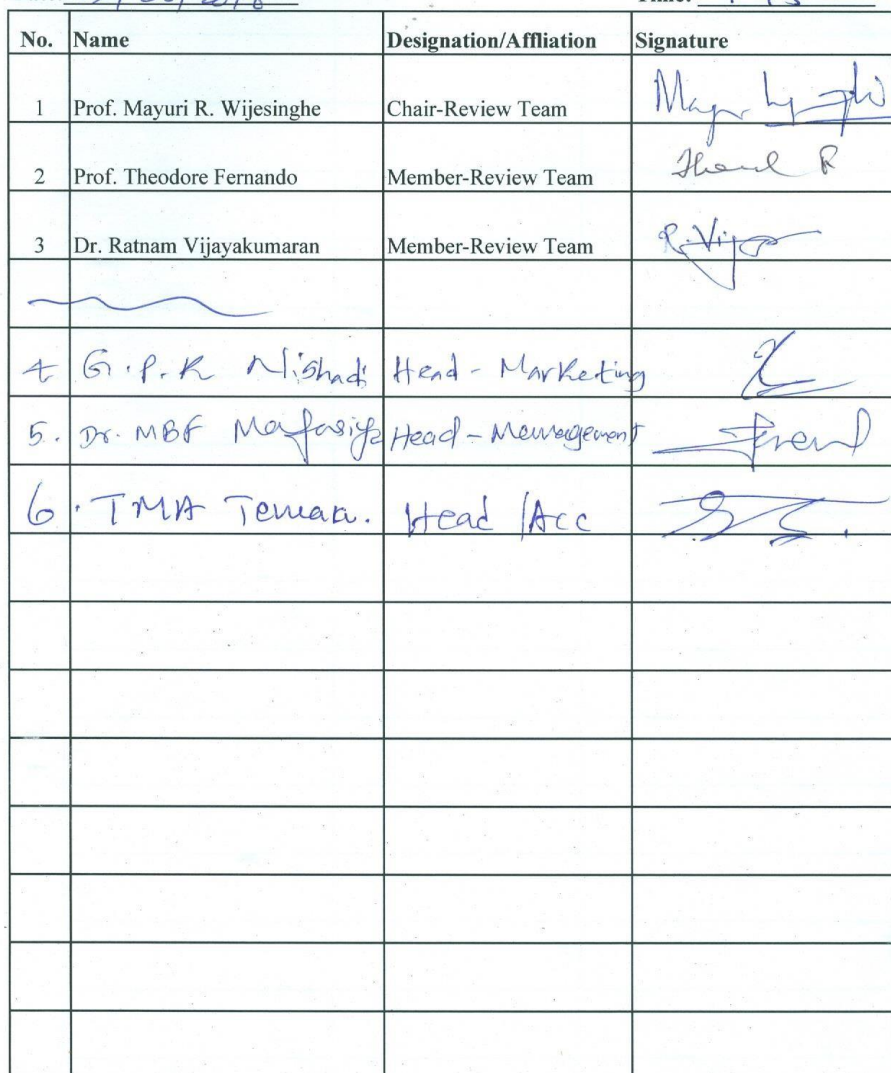 No. Name Designation/Affliation Signature
1 Prof. Mayuri R. Wijesinghe Chair-Review Team
2 Prof. Theodore Fernando Member-Review Team
3 Dr. Ratnam Vijayakumaran Member-Review Team R. Vijay
4 G.P.K Nishadi Head - Marketing
5. Dr. MBF Mafasiya Head - Management
6. TMA Head / Acc